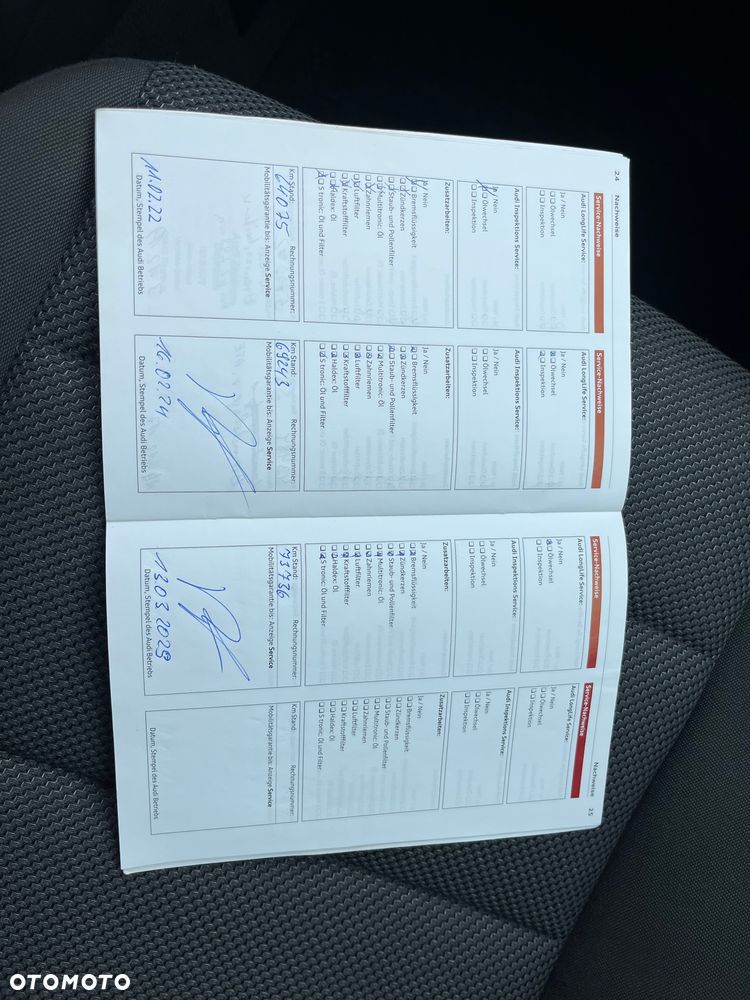 24 Nachweise
Service-Nachweise
Audi LongLife Service:
Ja / Nein
Ölwechsel
Inspektion
Audi Inspektions Service:
Ja / Nein
Ölwechsel
Inspektion
Zusatzarbeiten:
Ja / Nein
Bremsflüssigkeit
Zündkerzen
Staub- und Pollenfilter
Multitronic: Öl
Zahnriemen
Luftfilter
Kraftstofffilter
Haldex: Öl
S tronic: Öl und Filter
Km Stand: Rechnungsnummer:
64075
Mobilitätsgarantie bis: Anzeige Service
11.02.22
Datum, Stempel des Audi Betriebs
Service-Nachweise
Audi LongLife Service:
Ja / Nein
Ölwechsel
Inspektion
Audi Inspektions Service:
Ja / Nein
Ölwechsel
Inspektion
Zusatzarbeiten:
Ja / Nein
Bremsflüssigkeit
Zündkerzen
Staub- und Pollenfilter
Multitronic: Öl
Zahnriemen
Luftfilter
Kraftstofffilter
Haldex: Öl
S tronic: Öl und Filter
Km Stand: Rechnungsnummer:
69243
Mobilitätsgarantie bis: Anzeige Service
16.02.24
Datum, Stempel des Audi Betriebs
Service-Nachweise
Audi LongLife Service:
Ja / Nein
Ölwechsel
Inspektion
Audi Inspektions Service:
Ja / Nein
Ölwechsel
Inspektion
Zusatzarbeiten:
Ja / Nein
Bremsflüssigkeit
Zündkerzen
Staub- und Pollenfilter
Multitronic: Öl
Zahnriemen
Luftfilter
Kraftstofffilter
Haldex: Öl
S tronic: Öl und Filter
Km Stand: Rechnungsnummer:
73736
Mobilitätsgarantie bis: Anzeige Service
13.03.2025
Datum, Stempel des Audi Betriebs
Nachweise 25
Service-Nachweise
Audi LongLife Service:
Ja / Nein
Ölwechsel
Inspektion
Audi Inspektions Service:
Ja / Nein
Ölwechsel
Inspektion
Zusatzarbeiten:
Ja / Nein
Bremsflüssigkeit
Zündkerzen
Staub- und Pollenfilter
Multitronic: Öl
Zahnriemen
Luftfilter
Kraftstofffilter
Haldex: Öl
S tronic: Öl und Filter
Km Stand: Rechnungsnummer:
Mobilitätsgarantie bis: Anzeige Service
Datum, Stempel des Audi Betriebs
OTOMOTO